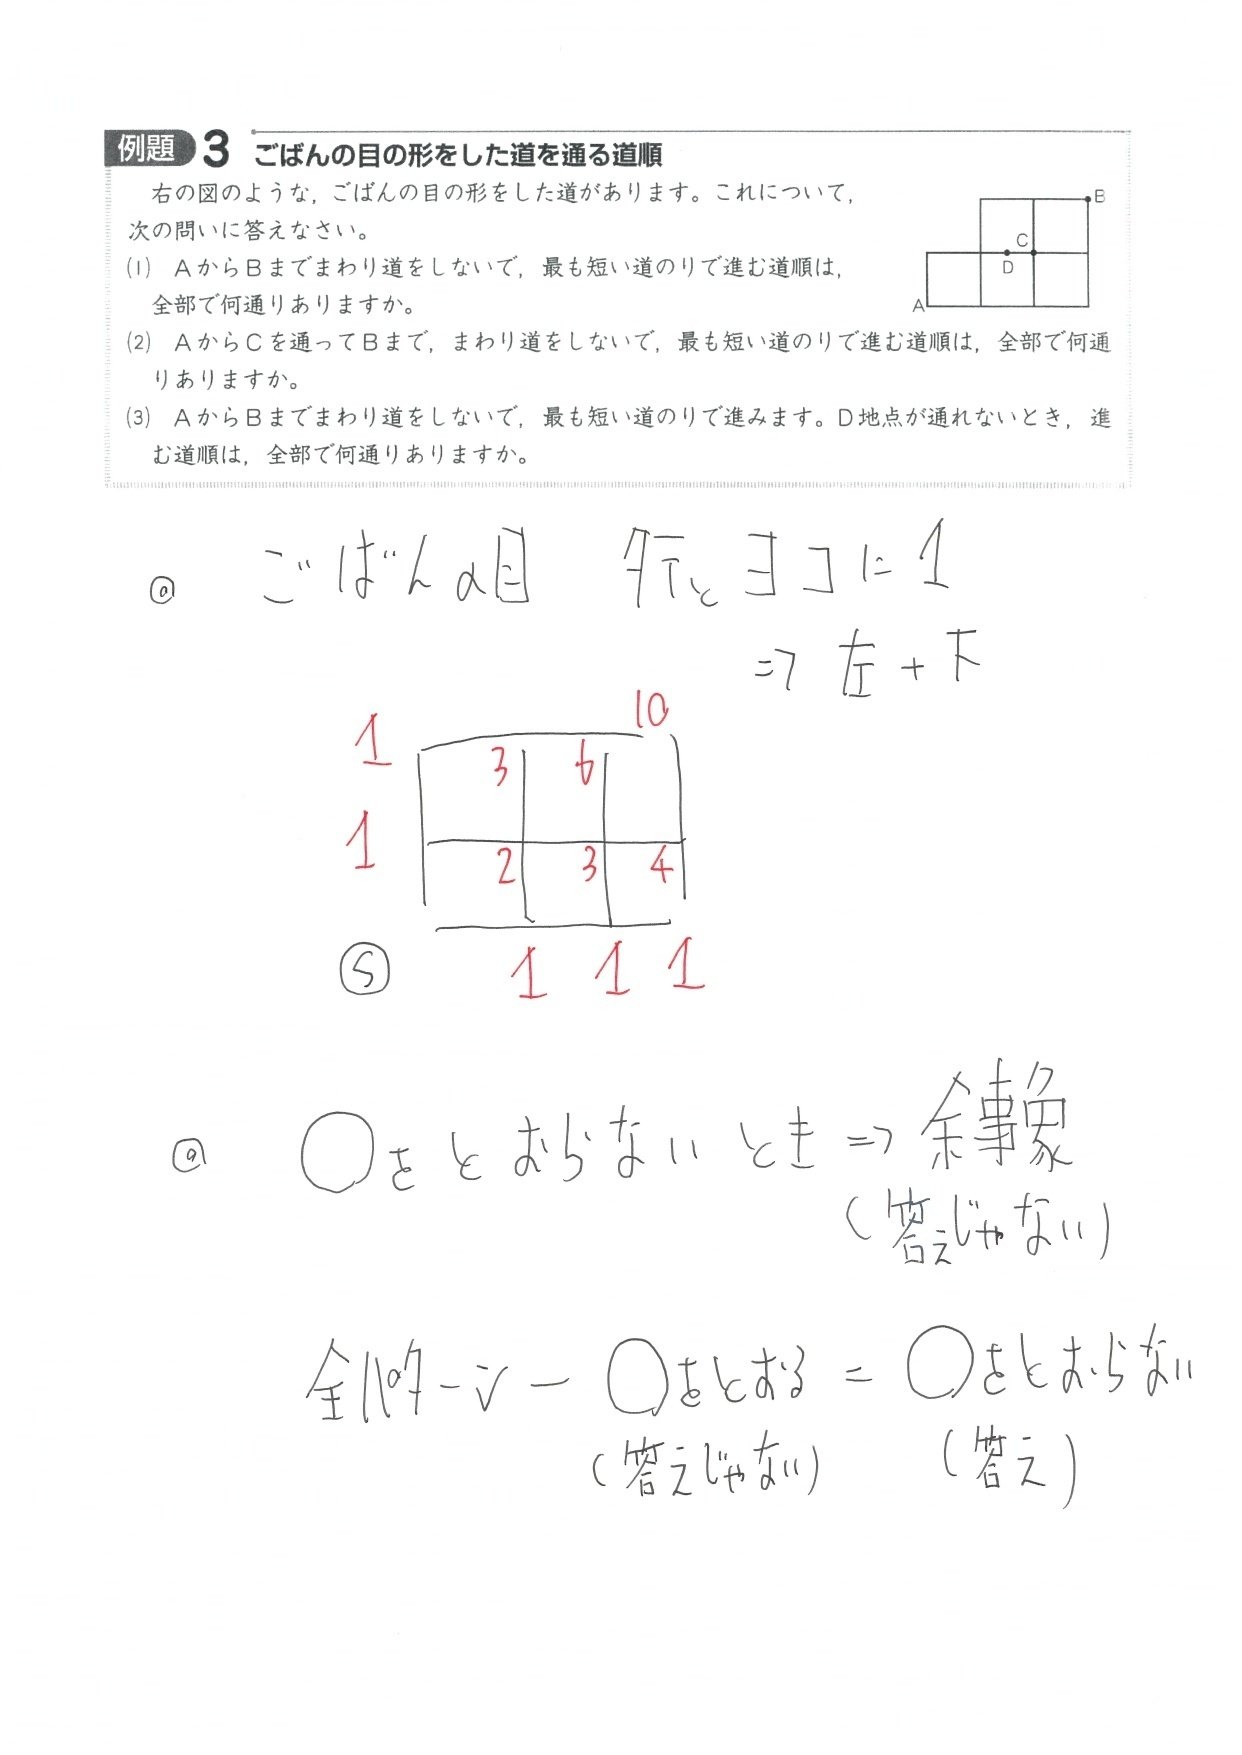 例題 3 ごばんの目の形をした道を通る道順
右の図のような，ごばんの目の形をした道があります。これについて，
次の問いに答えなさい。
(1) AからBまでまわり道をしないで，最も短い道のりで進む道順は，
全部で何通りありますか。
B
C
D
A
(2) AからCを通ってBまで，まわり道をしないで，最も短い道のりで進む道順は，全部で何通
りありますか。
(3) AからBまでまわり道をしないで，最も短い道のりで進みます。D地点が通れないとき，進
む道順は，全部で何通りありますか。
@ ごばんの目 タテとヨコに1
⇒ 左+下
10
1 3 6
1 2 3 4
S 1 1 1
@ ○をとおらないとき ⇒ 余事象
(答えじゃない)
全パターン - ○をとおる = ○をとおらない
(答えじゃない) (答え)